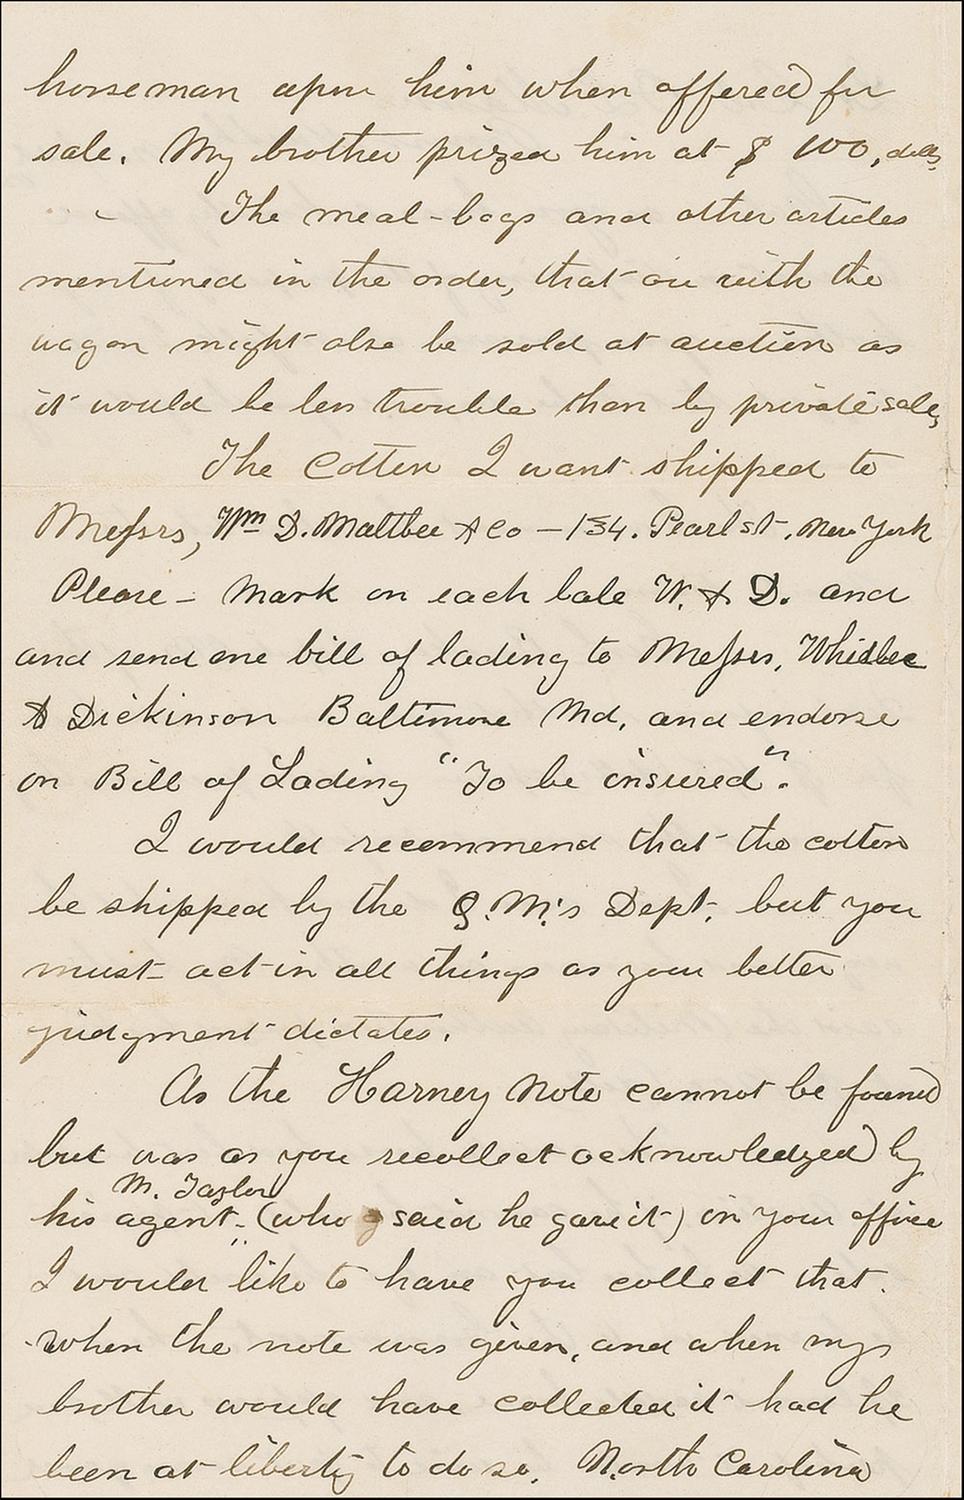 horseman upon him when offered for
sale. My brother prized him at $100, dolls,
The meal-bags and other articles
mentioned in the order, that are with the
wagon might also be sold at auction as
it would be less trouble than by private sale,
The Cotton I want shipped to
Messrs, Wm D. Maltbee & Co - 134. Pearl st. New York
Please - Mark on each bale W. & D. and
and send one bill of lading to Messrs, Whidbee
& Dickinson Baltimore Md, and endorse
on Bill of Lading "To be insured".
I would recommend that the cotton
be shipped by the Q.M.'s Dept. but you
must act in all things as your better
judgment dictates.
As the Harney Note cannot be found
but was as you recollect acknowledged by
M. Taylor
his agent - (who said he gave it) in your office
I would like to have you collect that.
when the note was given, and when my
brother would have collected it had he
been at liberty to do so. North Carolina